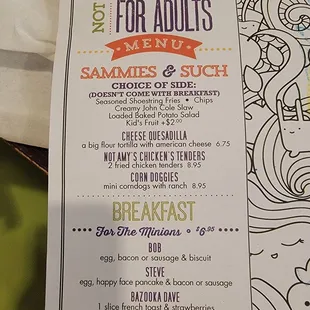 NOT
FOR ADULTS
MENU
SAMMIES & SUCH
CHOICE OF SIDE:
(DOESN'T COME WITH BREAKFAST)
Seasoned Shoestring Fries • Chips
Creamy John Cole Slaw
Loaded Baked Potato Salad
Kid's Fruit +$2.00
CHEESE QUESADILLA
a big flour tortilla with american cheese 6.75
NOT AMY'S CHICKEN'S TENDERS
2 fried chicken tenders 8.95
CORN DOGGIES
mini corndogs with ranch 8.95
BREAKFAST
For The Minions • $6.95
BOB
egg, bacon or sausage & biscuit
STEVE
egg, happy face pancake & bacon or sausage
BAZOOKA DAVE
1 slice french toast & strawberries